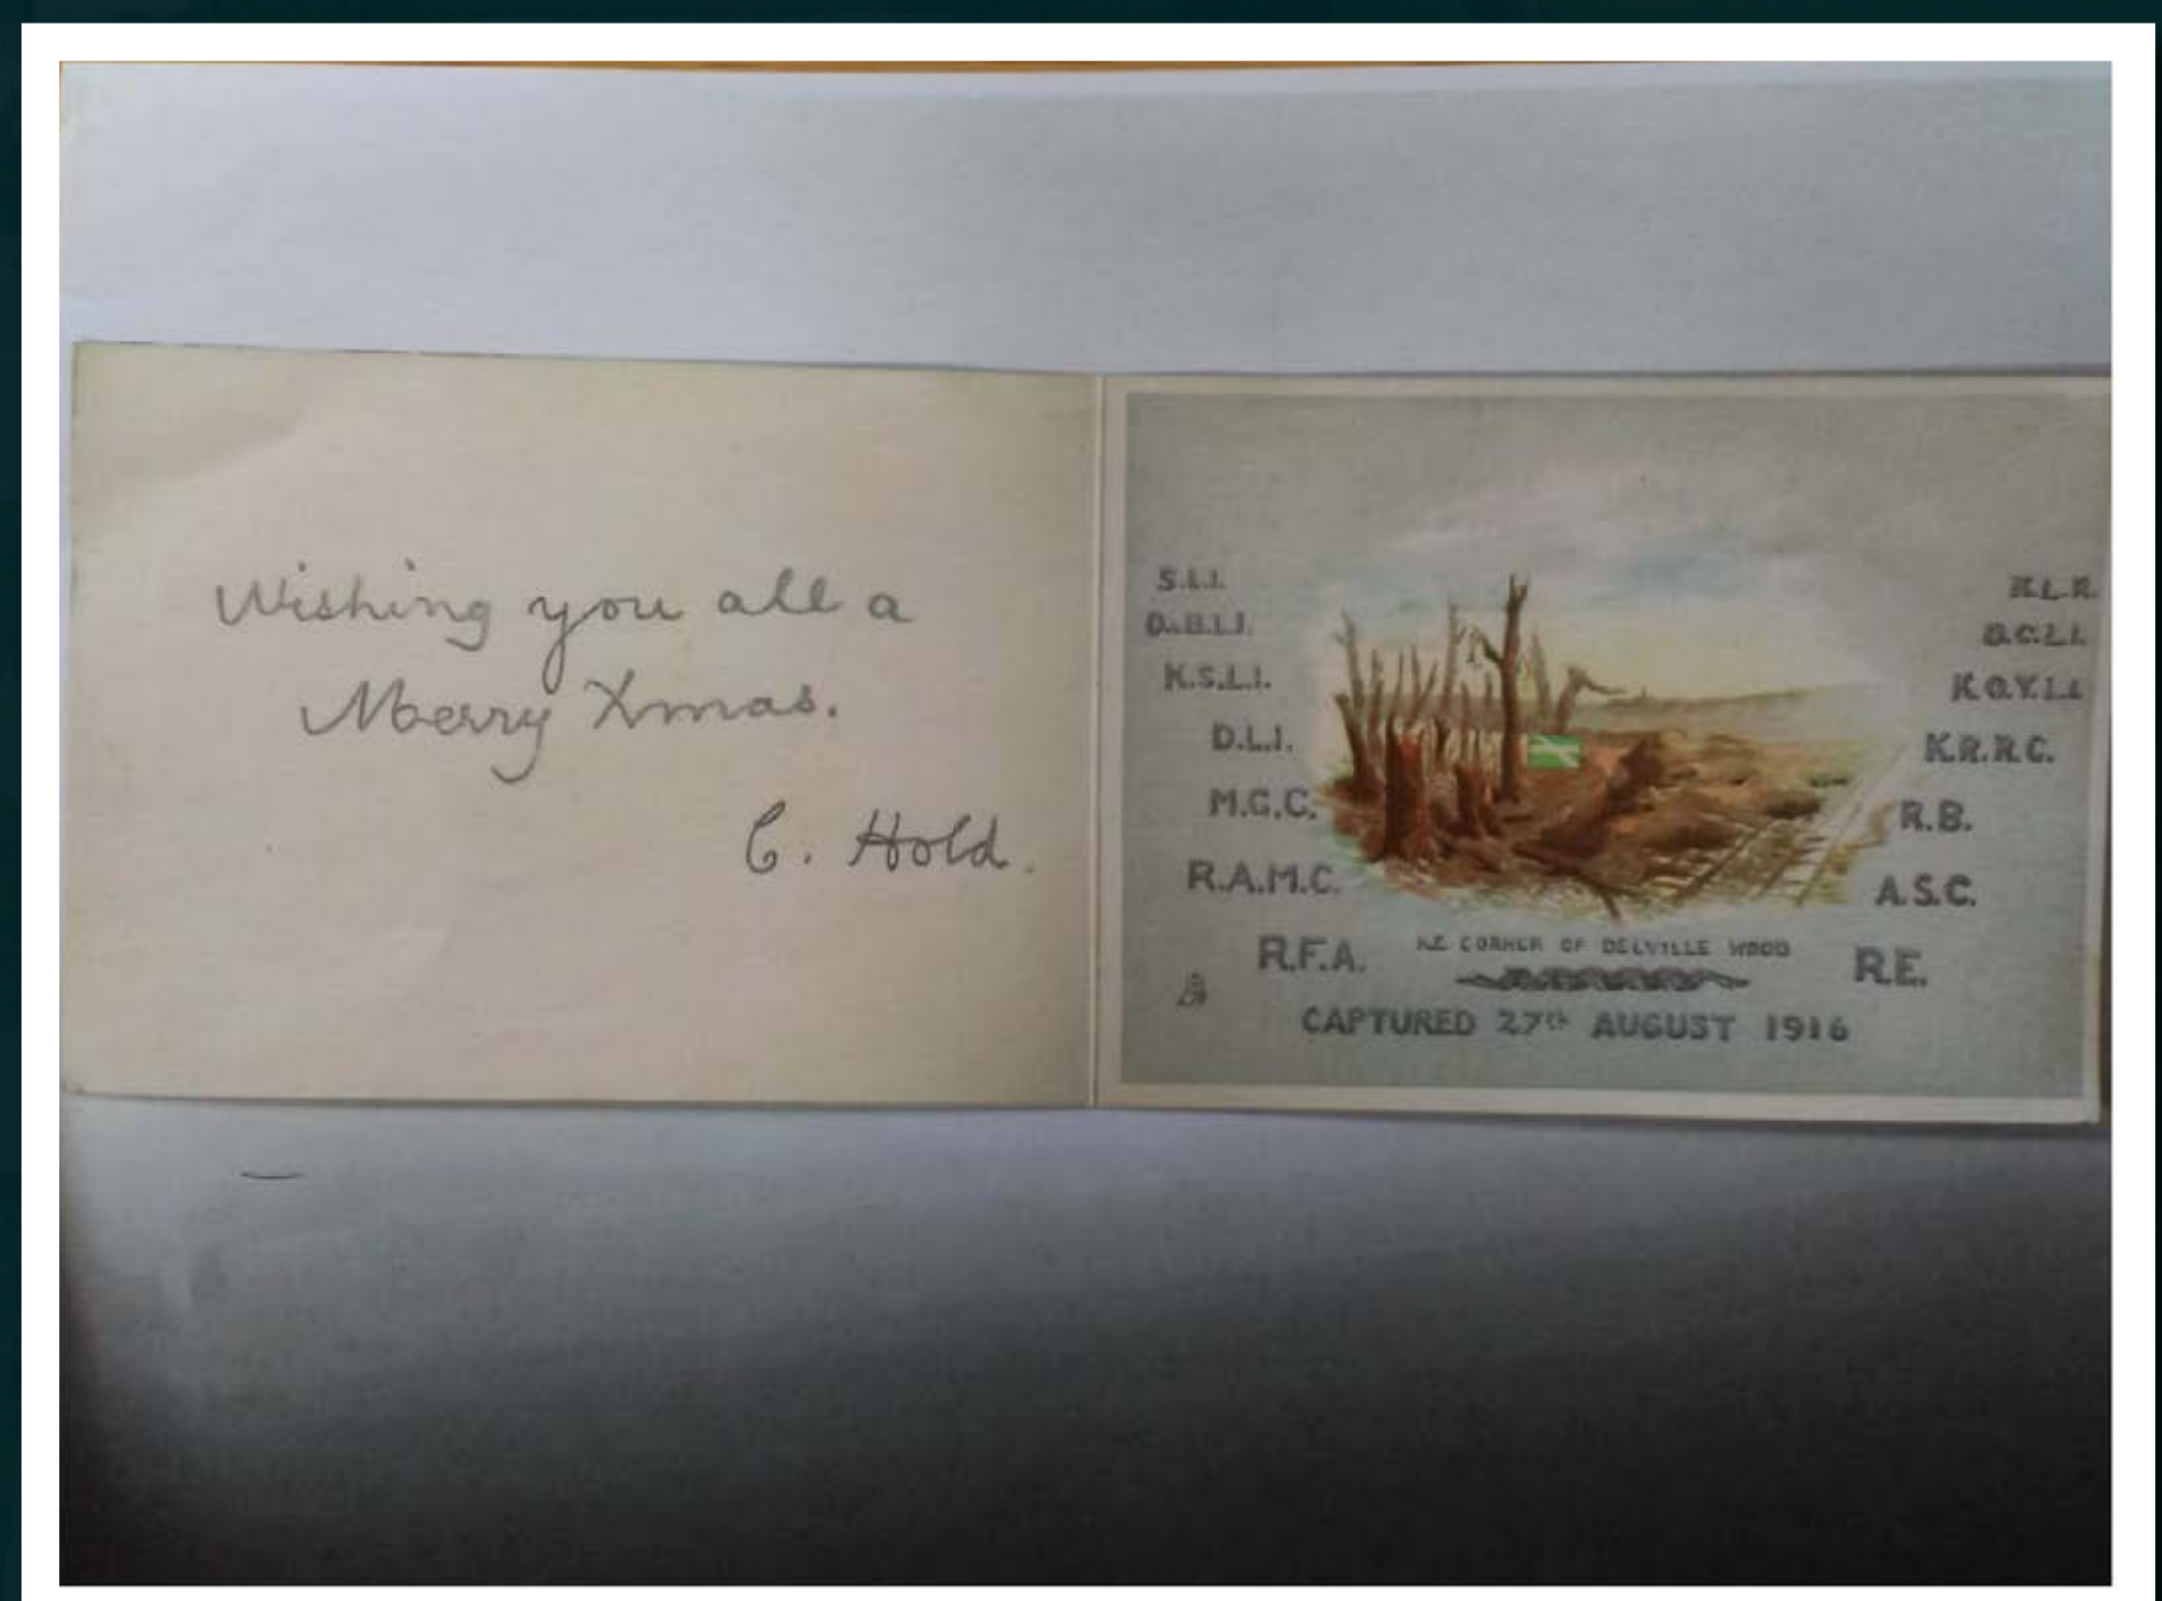 Wishing you all a
Merry Xmas.
C. Hold.
S.L.I.
K.S.L.I.
D.L.I.
M.G.C.
R.A.M.C.
R.F.A.
K.L.R.
D.C.L.I.
K.O.Y.L.I.
K.R.R.C.
R.B.
A.S.C.
R.E.
N.E. CORNER OF DELVILLE WOOD
CAPTURED 27th AUGUST 1916